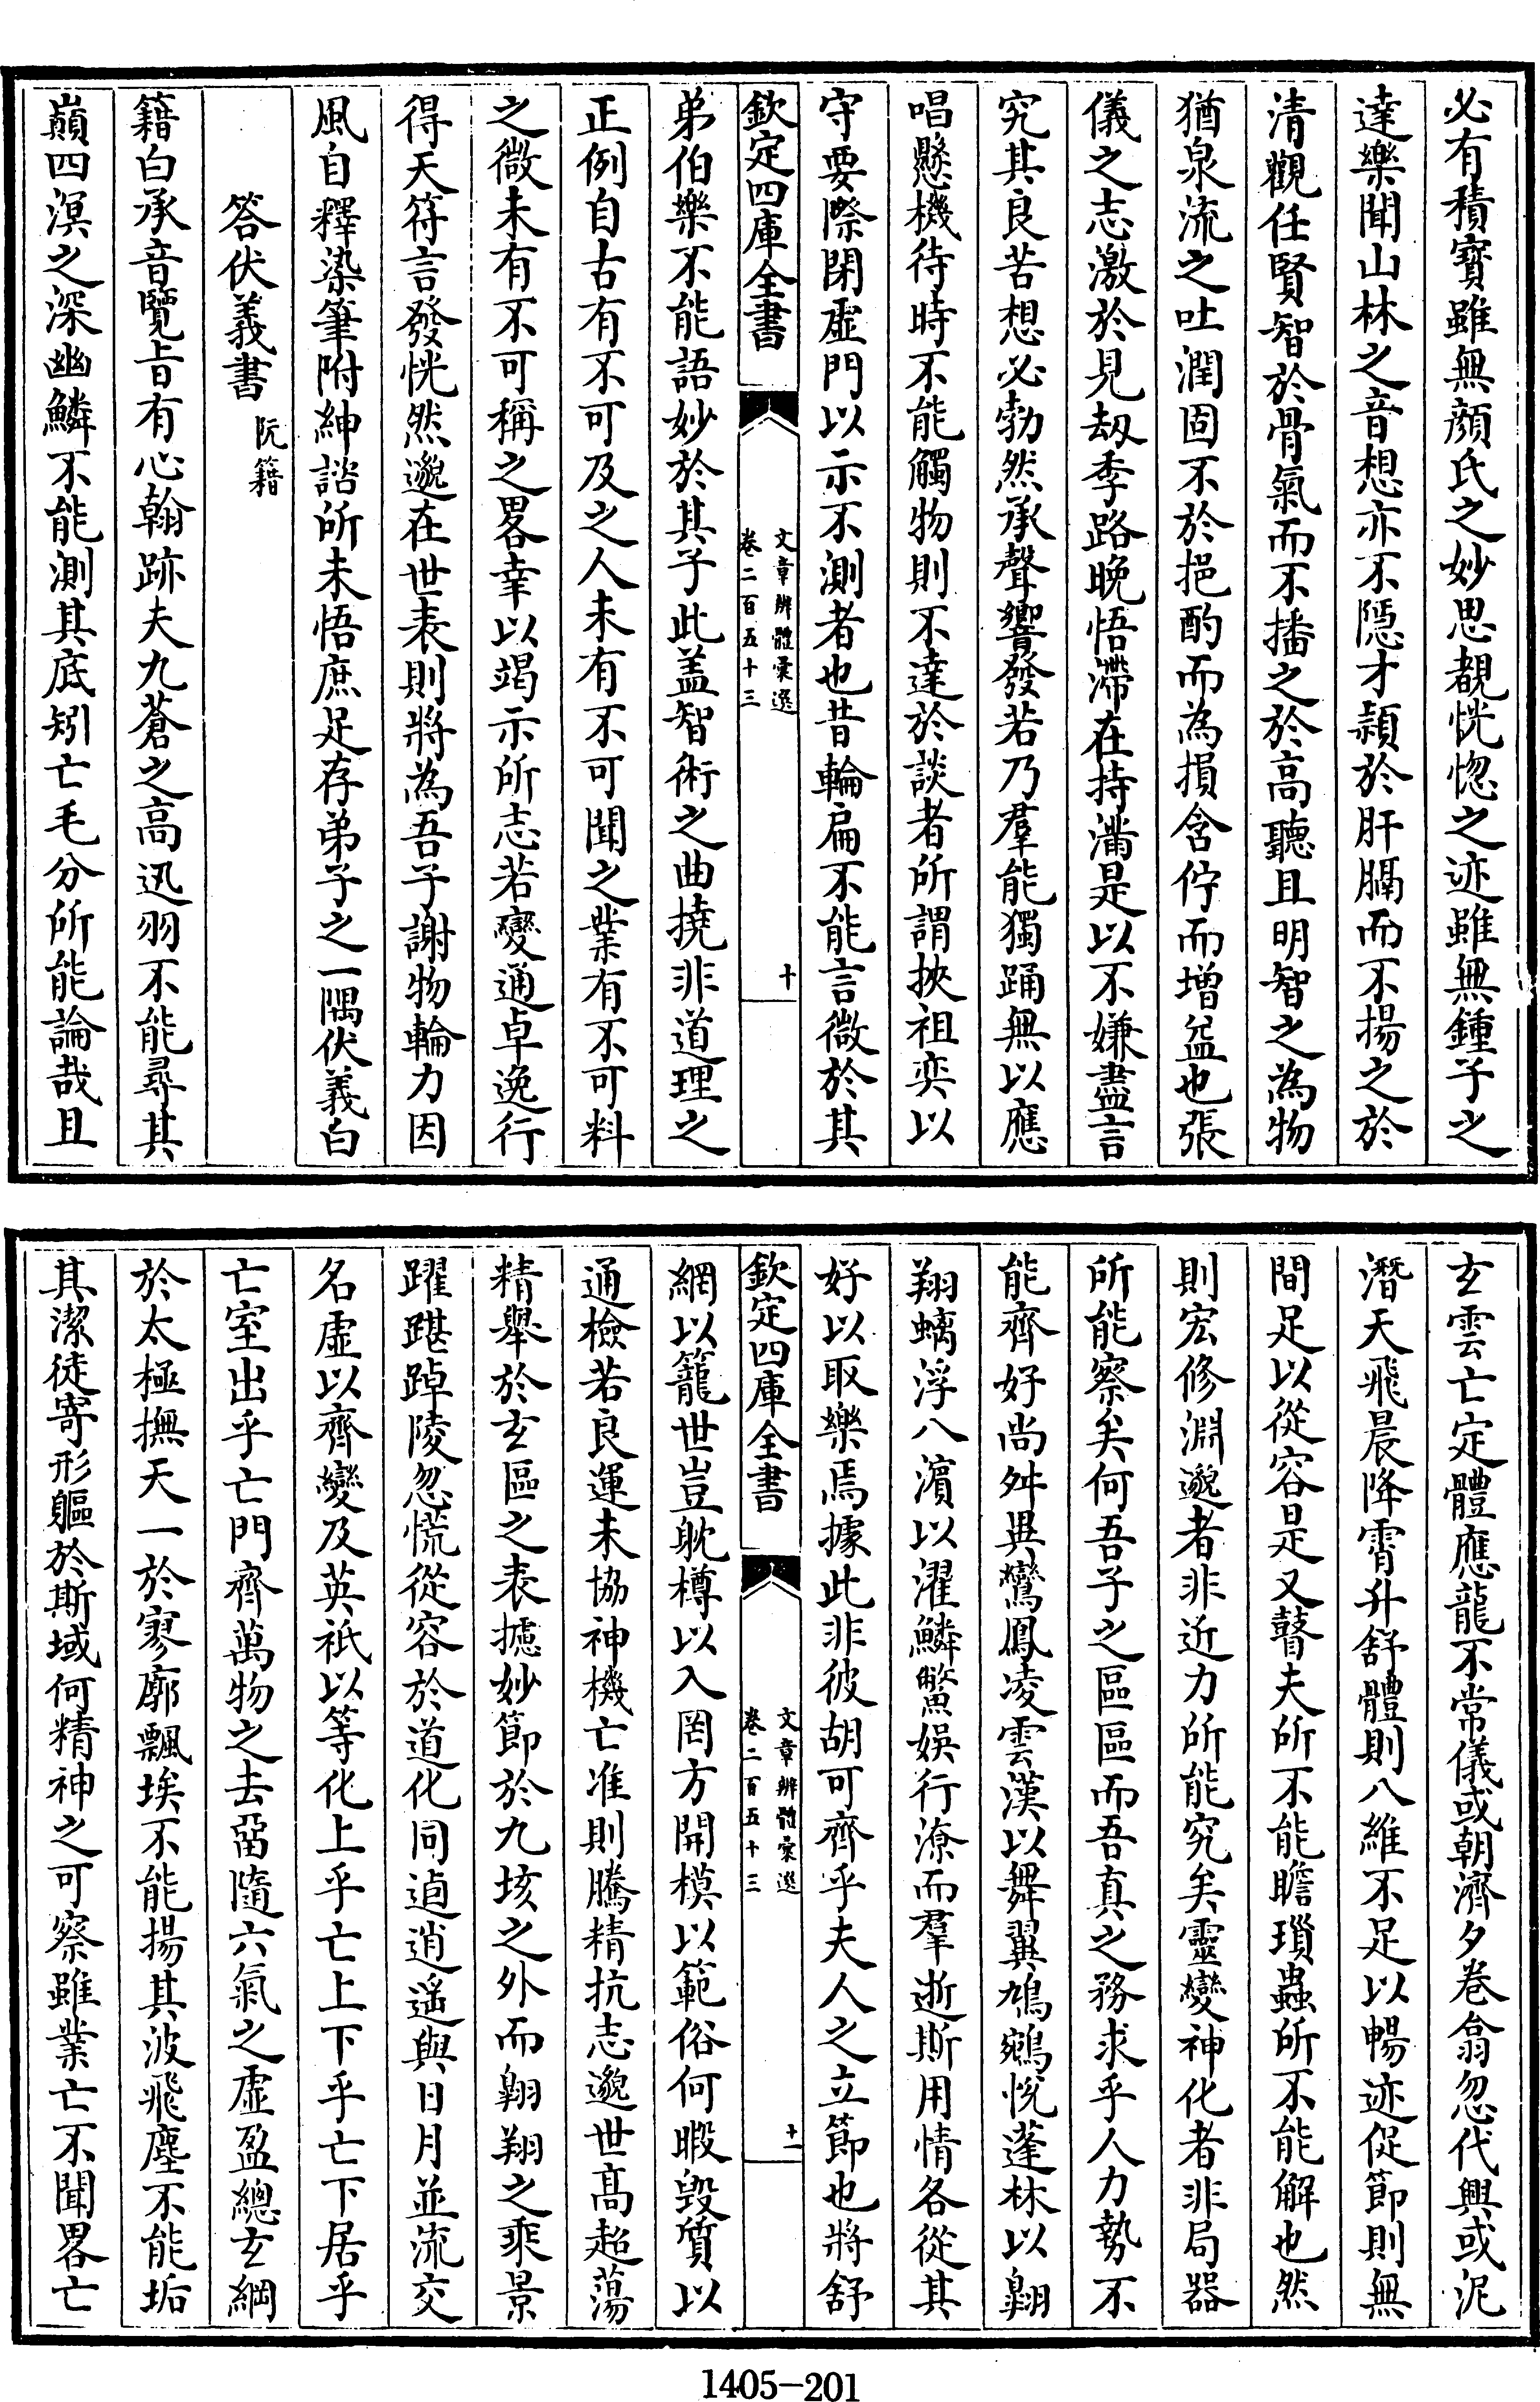 必有積寳雖無顔氏之妙思覩恍惚之迹雖無鍾子之
達樂聞山林之音想亦不隠才頴於肝膈而不揚之於
清觀任賢智於骨氣而不播之於高聽且明智之為物
猶泉流之吐潤固不於挹酌而為損含佇而增益也張
儀之志激於見劫季路晚悟滯在持滿是以不嫌盡言
究其良苦想必勃然承聲響發若乃羣能獨踊無以應
唱懸機待時不能觸物則不達於談者所謂挾祖奕以
守要際閉虛門以示不測者也昔輪扁不能言微於其
欽定四庫全書
文章辨體彙選
卷二百五十三
十
弟伯樂不能語妙於其子此盖智術之曲撓非道理之
正例自古有不可及之人未有不可聞之業有不可料
之微未有不可稱之畧幸以竭示所志若變通卓逸行
得天符言發恍然邈在世表則將為吾子謝物輪力因
風自釋染筆附紳諮所未悟庶足存弟子之一隅伏義白
答伏義書 阮籍
籍白承音覽旨有心翰跡夫九蒼之高迅羽不能尋其
巔四溟之深幽鱗不能測其底矧亡毛分所能論哉且
玄雲亡定體應龍不常儀或朝濟夕卷翕忽代興或泥
潛天飛晨降霄升舒體則八維不足以暢迹促節則無
間足以從容是又瞽夫所不能瞻瑣蟲所不能解也然
則宏修淵邈者非近力所能究矣靈變神化者非局器
所能察矣何吾子之區區而吾真之務求乎人力勢不
能齊好尚舛異鸞鳳凌雲漢以舞翼鳩鵷悅蓬林以翺
翔螭浮八濵以濯鱗鱉娛行潦而羣逝斯用情各從其
好以取樂焉據此非彼胡可齊乎夫人之立節也將舒
欽定四庫全書
文章辨體彙選
卷二百五十三
十一
網以籠世豈躭樽以入罔方開模以範俗何暇毀質以
通檢若良運未協神機亡准則騰精抗志邈世髙超蕩
精舉於玄區之表攄妙節於九垓之外而翺翔之乘景
躍踸踔陵忽慌從容於道化同逌逍遥與日月並流交
名虛以齊變及英祇以等化上乎亡上下乎亡下居乎
亡室出乎亡門齊萬物之去畱隨六氣之虛盈總玄綱
於太極撫天一於寥廓飄埃不能揚其波飛塵不能垢
其潔徒寄形軀於斯域何精神之可察雖業亡不聞畧亡
1405-201